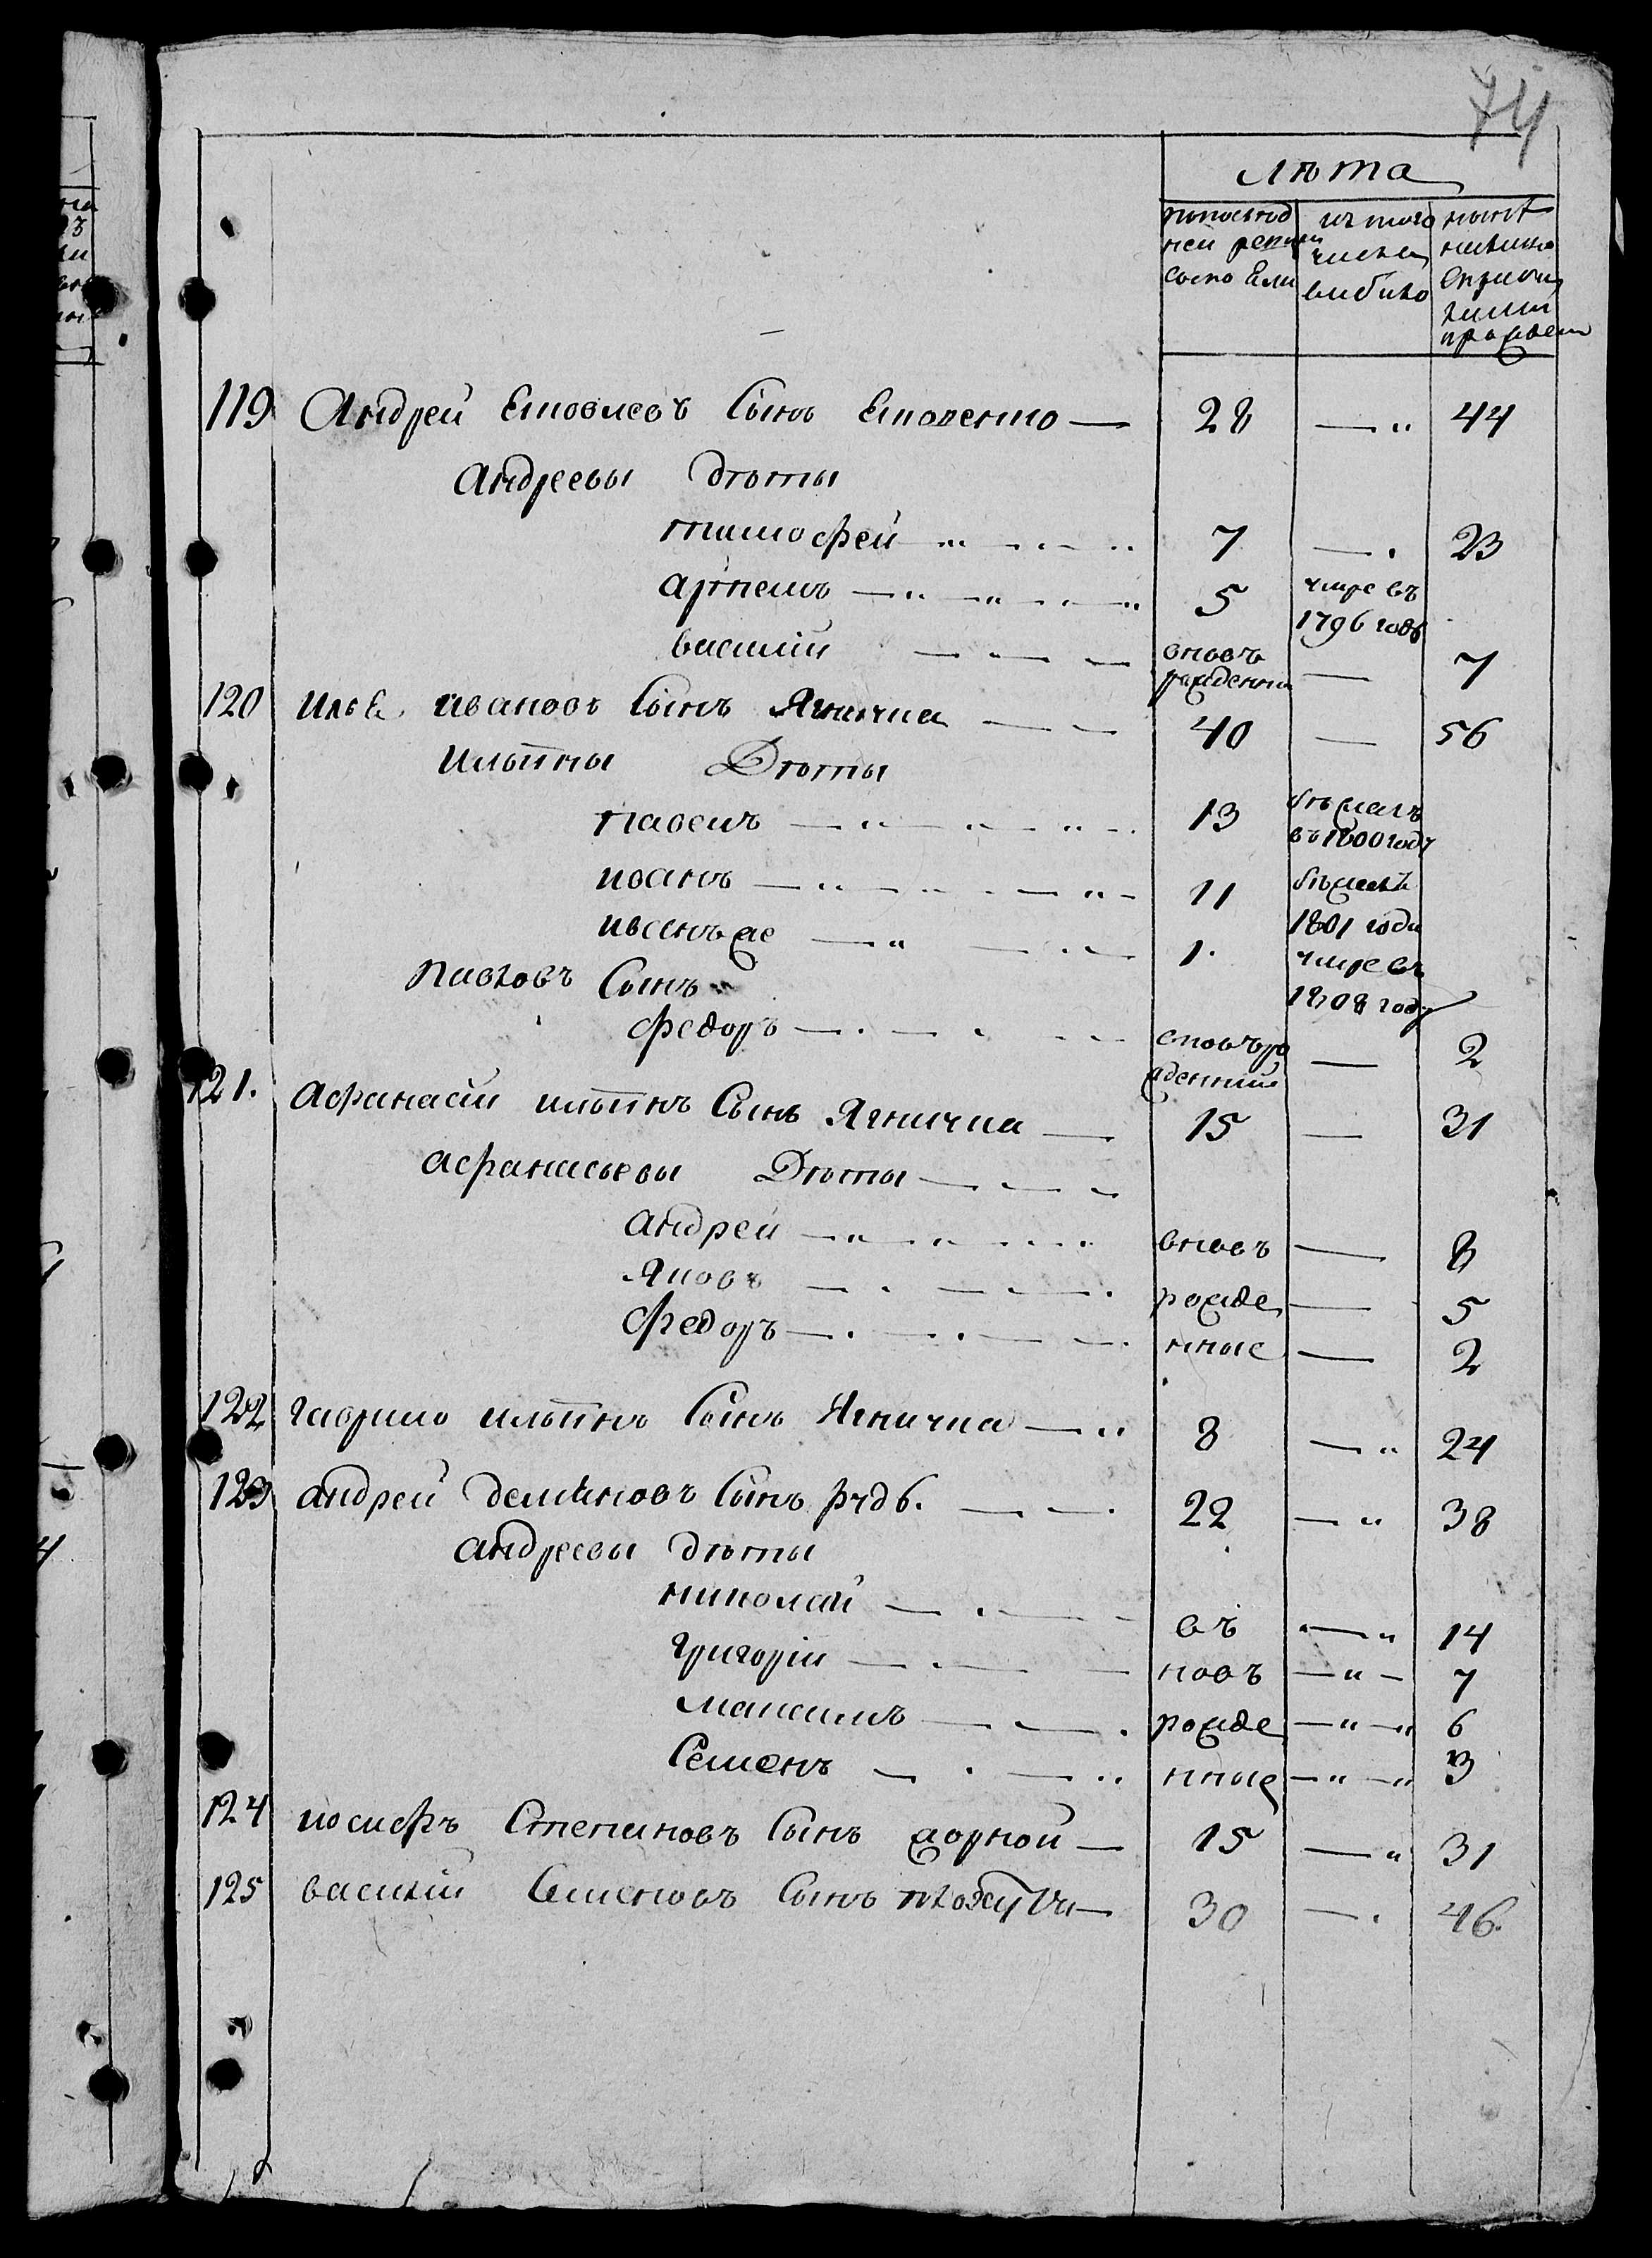 74
лѣта
попослед
ней ревизіи
было
изтого
числа
выбыло
ныне
налицо
119 Андрей сынъ 28 — 44
андреевы дѣты
тимофей 7 — 23
артемъ 5 умре въ
1796 годѣ
василій вновъ
рожденни — 7
120 Илья ивановъ сынъ Ягничка 40 — 56
Ильины Дѣты
павелъ 13 бѣжалъ
въ 1800 году
иванъ 11 бѣжалъ
1801 года
иванъ же 1. умре въ
1808 году
павловъ Сынъ
федоръ вновъро
жденний — 2
121. афанасій ильинъ Сынъ Ягничка 15 — 31
афанасьевы Дѣты
андрей вновъ — 8
Яковъ рожде — 5
федоръ нные — 2
122 гаврило ильинъ Сынъ Ягничка 8 — 24
123 андрей демяновъ Сынъ 22 — 38
андреевы дѣты
николай въ — 14
григорій новъ — 7
максимъ рожде — 6
Семенъ нные — 3
124 иосифъ Степановъ Сынъ жорной 15 — 31
125 василій Семеновъ Сынъ 30 — 46.